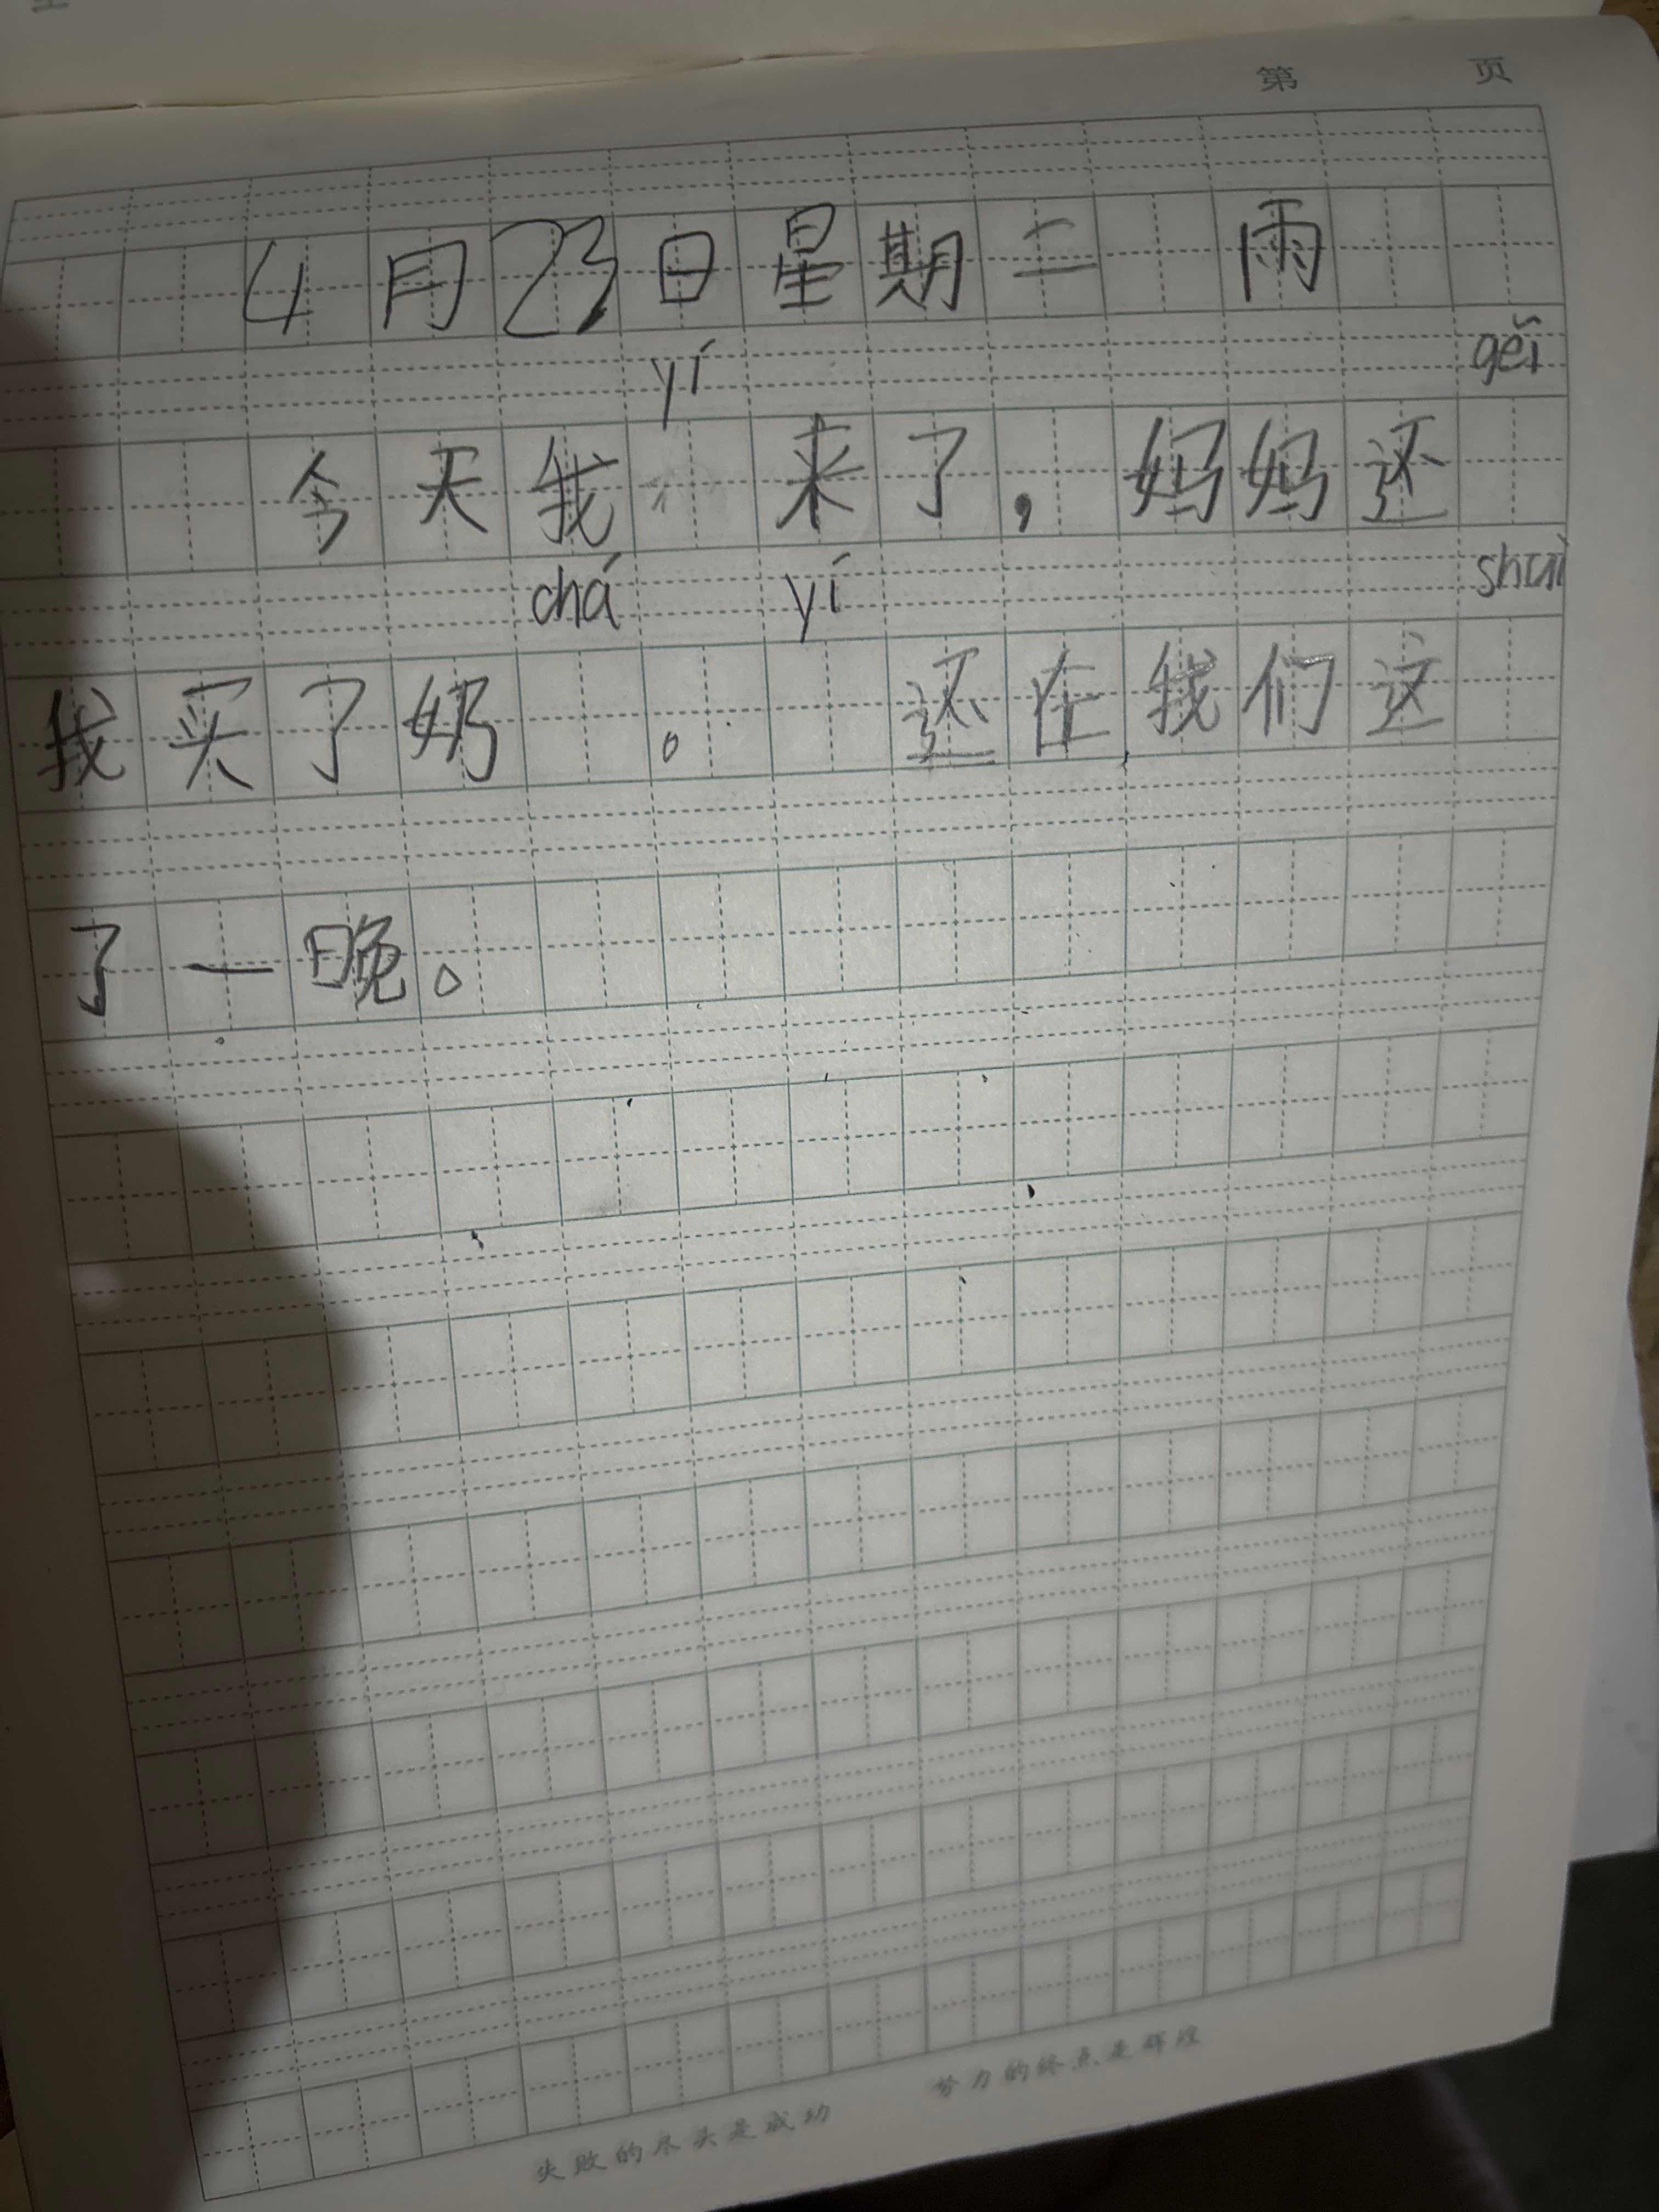 第 页
4月23日星期二 雨
yí gěi
今天我 来了，妈妈还
chá yí shuì
我买了奶 。 还在我们这
了一晚。
失败的尽头是成功 努力的终点是辉煌